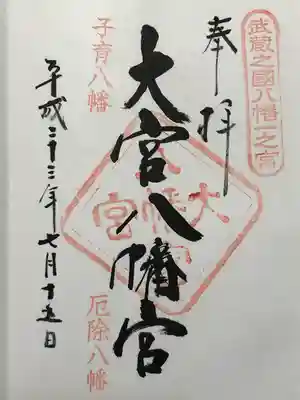 武蔵之國八幡一之宮
奉拝
大宮八幡宮
大宮八幡宮
子育八幡
厄除八幡
平成二十三年七月十五日